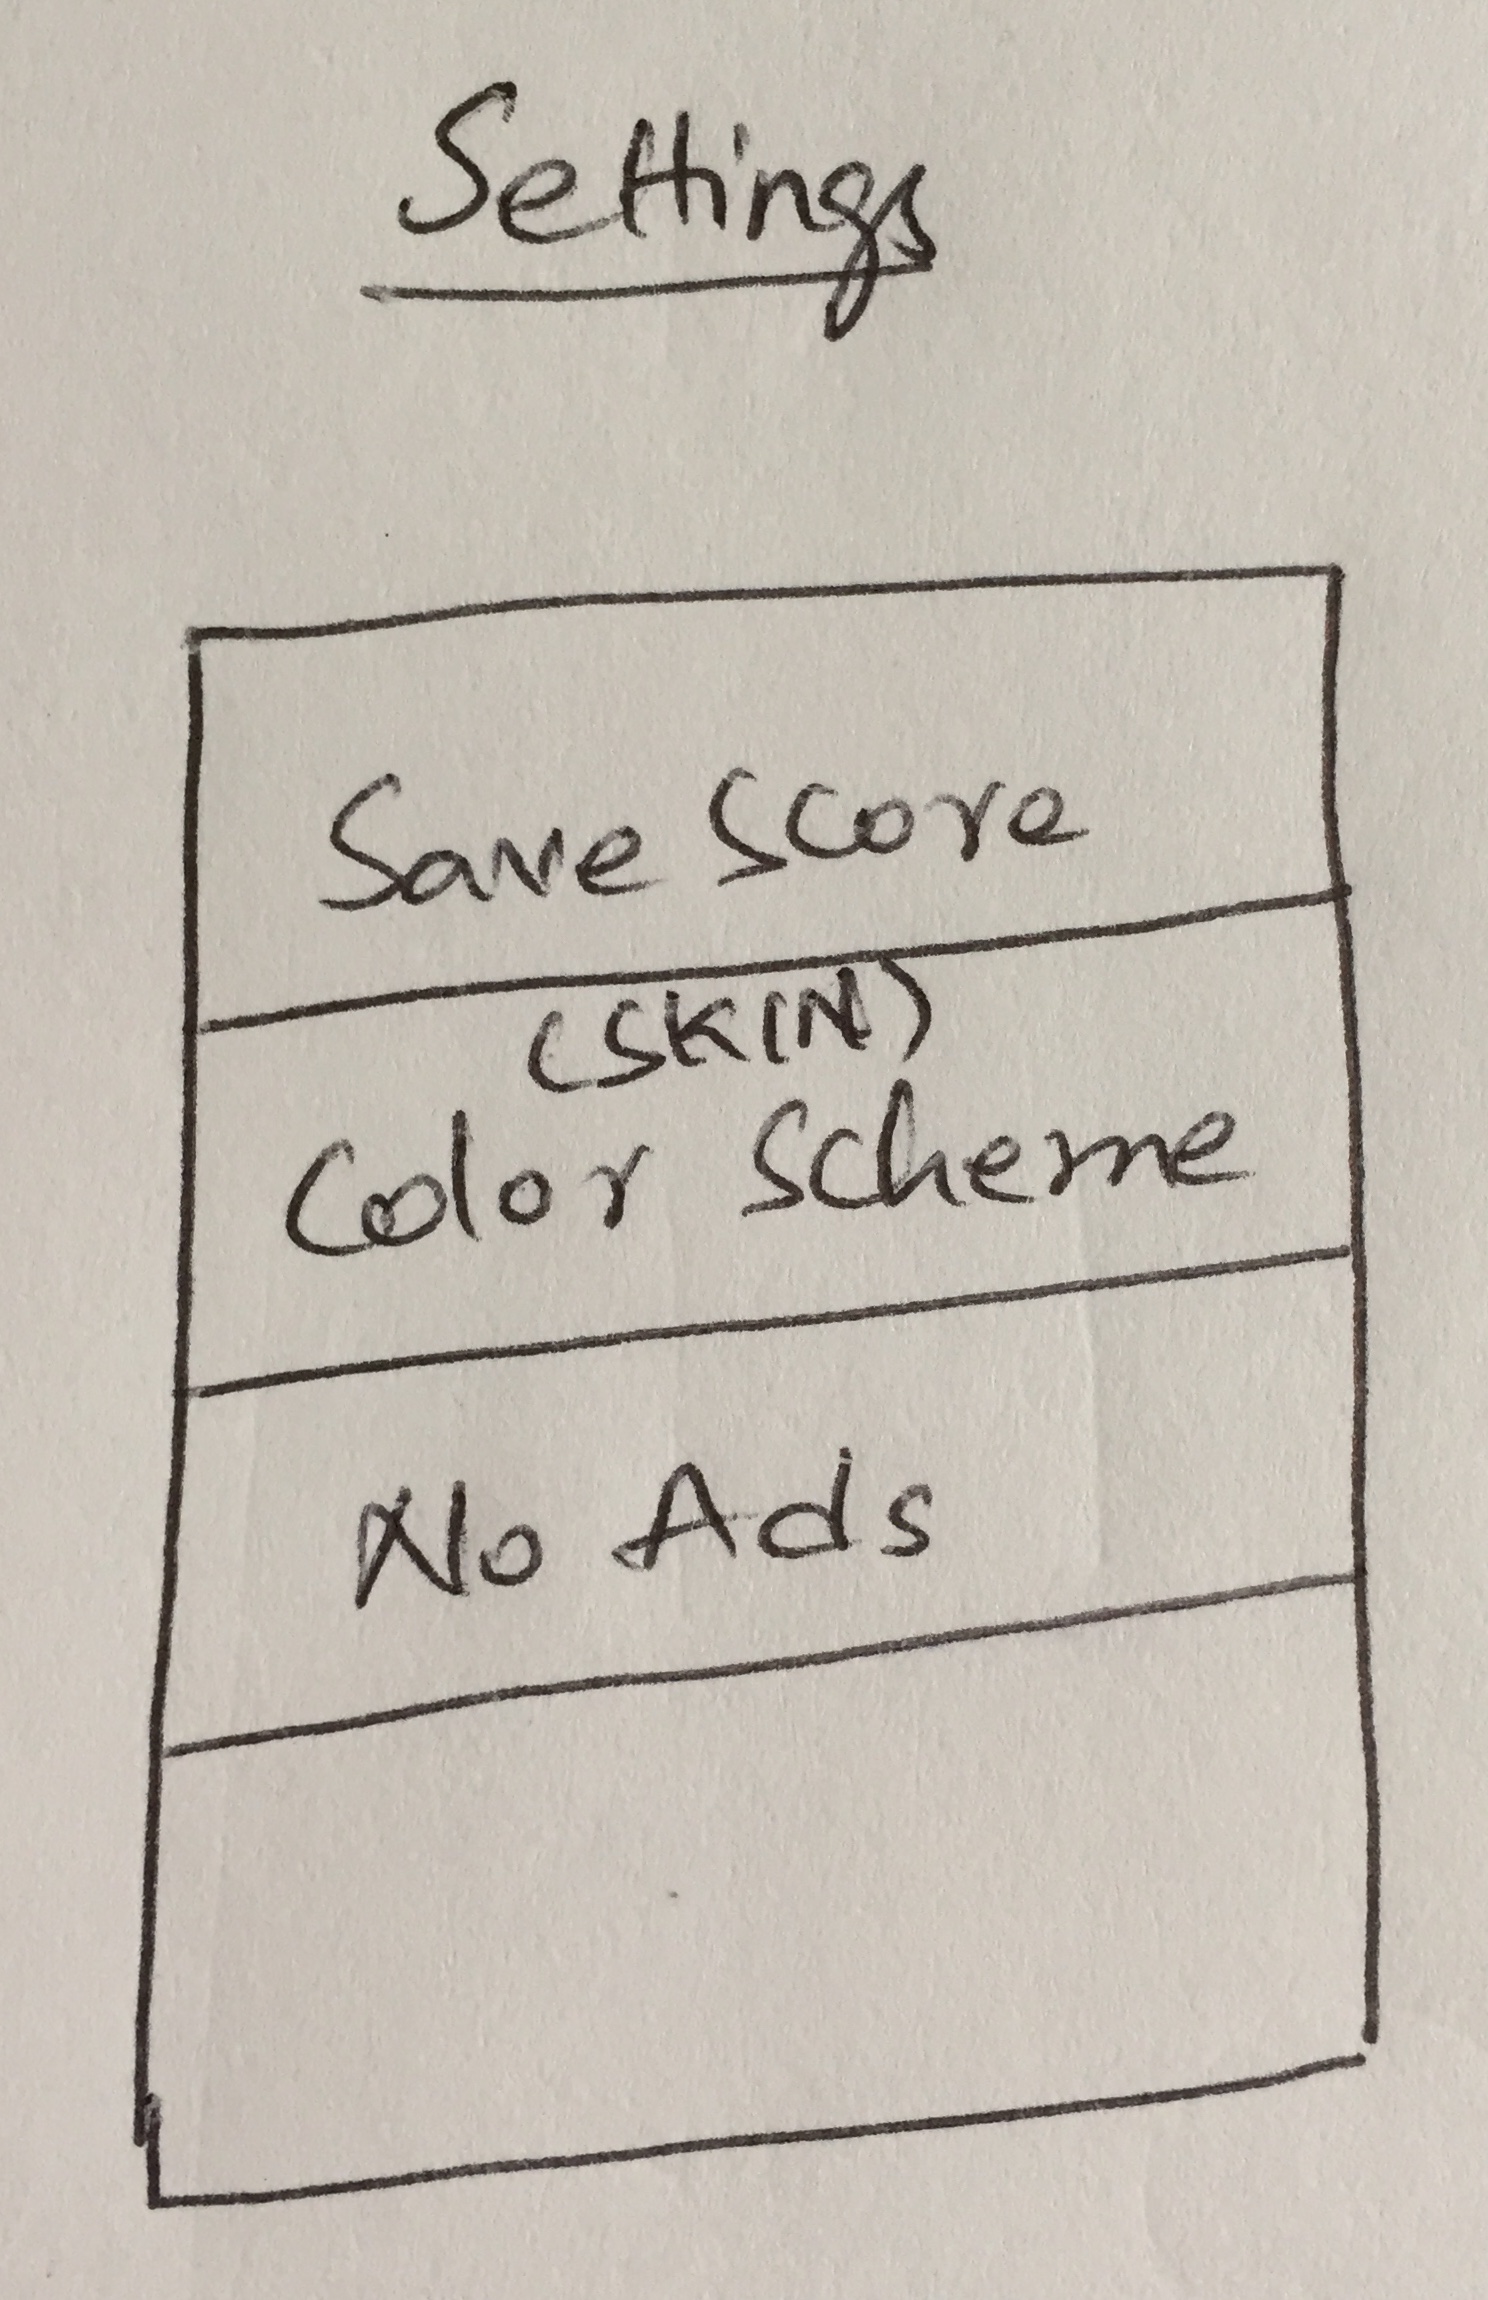 Settings
Save Score
(SKIN)
Color Scheme
No Ads